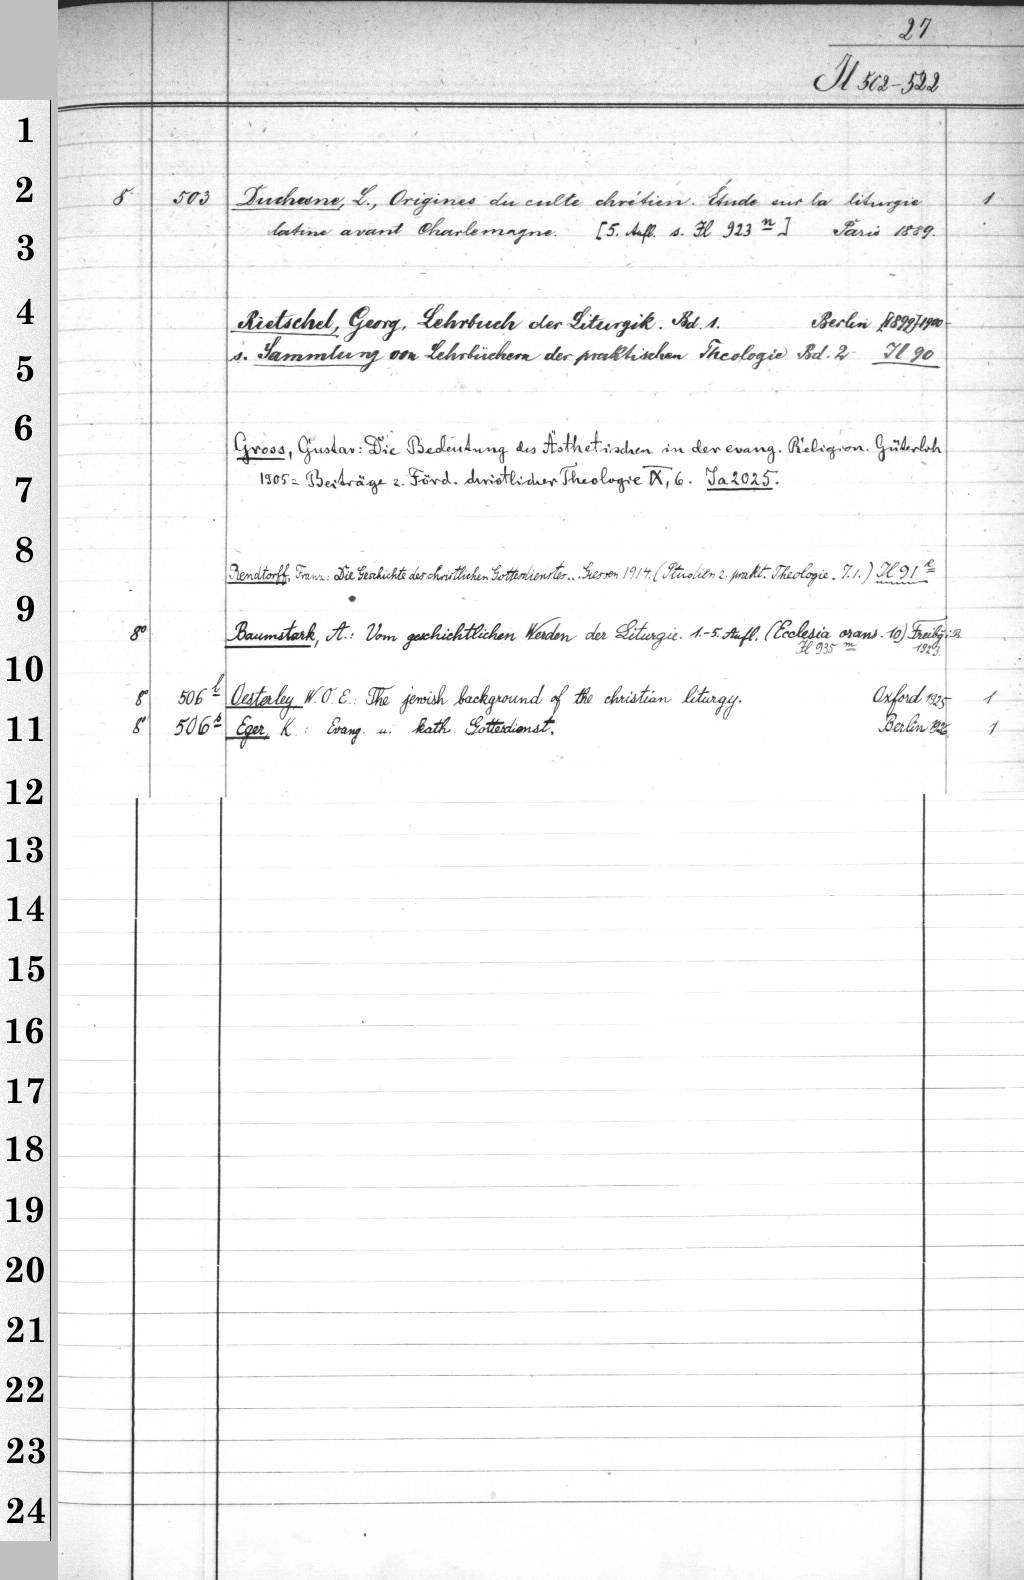 27
Il 502-522
1
2
8 503 Duchesne, L., Origines du culte chrétien. Étude sur la liturgie 1
latine avant Charlemagne. [5. Aufl. s. Il 923 n] Paris 1889.
3
4
Rietschel, Georg, Lehrbuch der Liturgik. Bd. 1. Berlin [1899]-1900-
s. Sammlung von Lehrbüchern der praktischen Theologie Bd. 2 Il 90
5
6
Gross, Gustav: Die Bedeutung des Ästhetischen in der evang. Religion. Gütersloh
1905 = Beiträge z. Förd. christlicher Theologie IX, 6. Ia 2025.
7
8
Rendtorff, Franz: Die Geschichte des christlichen Gottesdienstes... Giessen 1914. (Studien z. prakt. Theologie. 7.1.) Il 91
9
8° Baumstark, A.: Vom geschichtlichen Werden der Liturgie. 1.-5. Aufl. (Ecclesia orans. 10) Freibg i. B.
Il 935 m 1923.
10
8 506 Oesterley W. O. E.: The jewish background of the christian liturgy. Oxford 1925 1
11
8 506 Eger, K.: Evang. u. kath. Gottesdienst. Berlin 1926 1
12
13
14
15
16
17
18
19
20
21
22
23
24